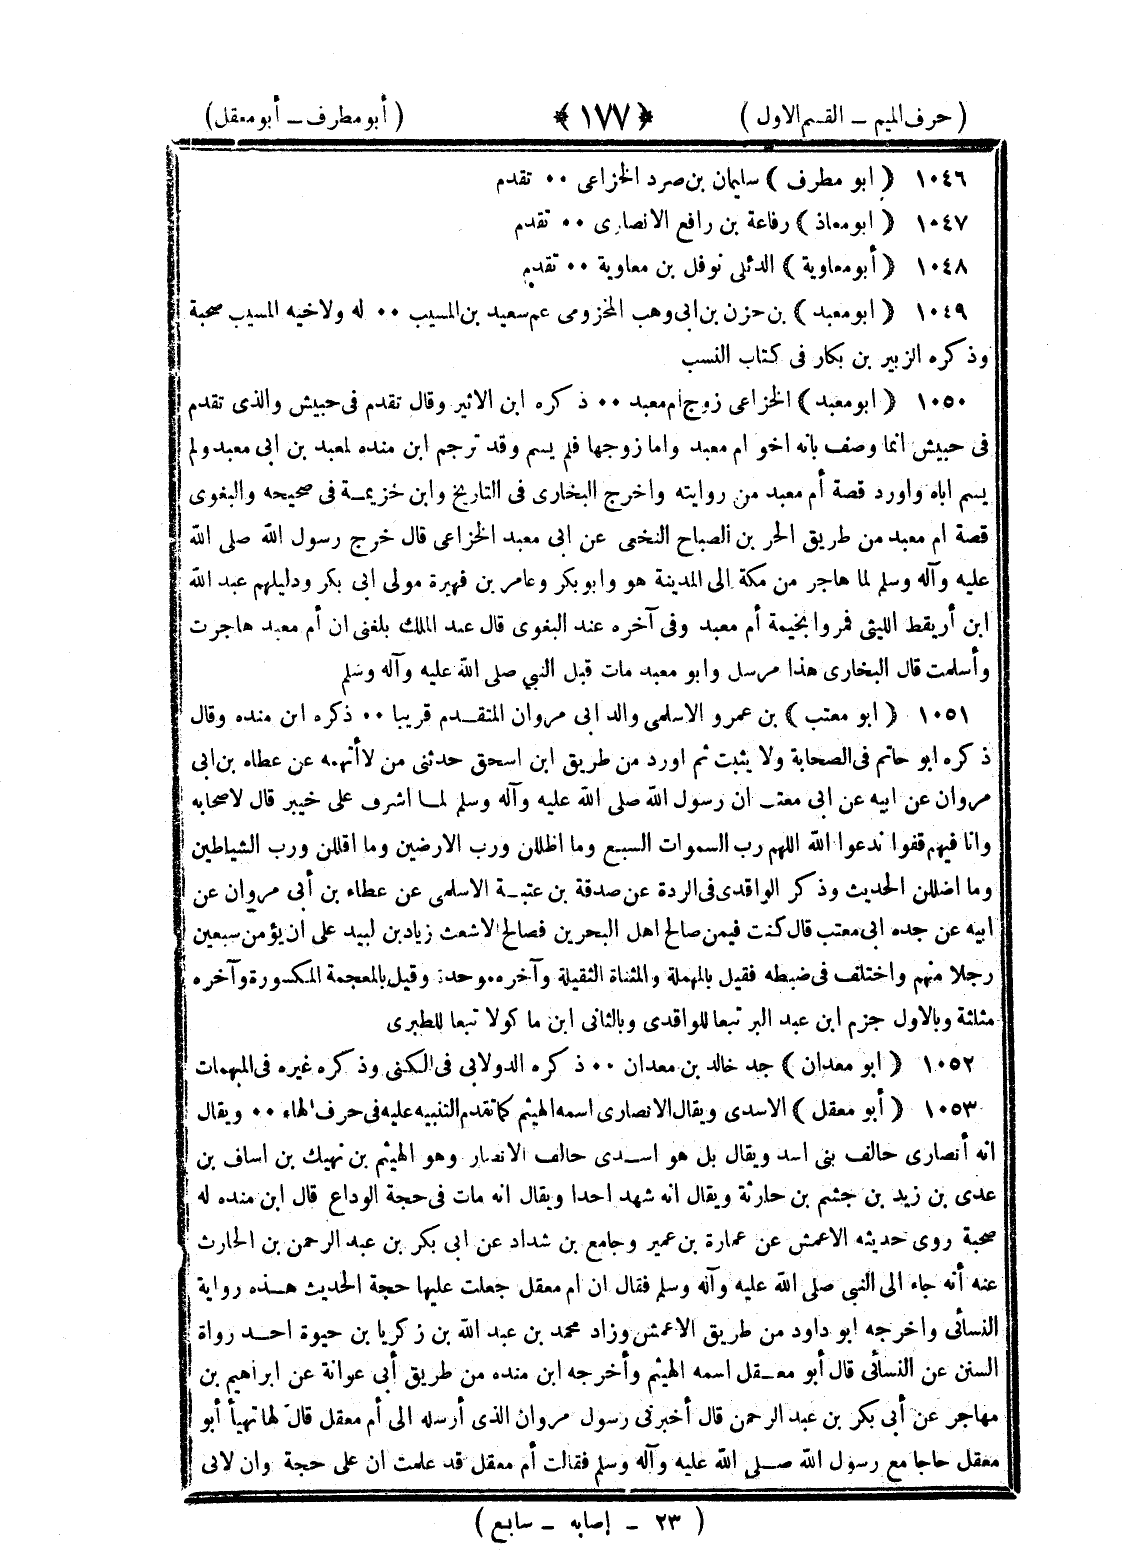 ( حرف الميم ـ القسم الاول ) ﴿ ١٧٧ ﴾ ( أبو مطرف ـ أبو معقل )
١٠٤٦ ( ابو مطرف ) سليمان بن صرد الخزاعى ٠٠ تقدم
١٠٤٧ ( ابومعاذ ) رفاعة بن رافع الانصارى ٠٠ تقدم
١٠٤٨ ( أبومعاوية ) الدئلى نوفل بن معاوية ٠٠ تقدم
١٠٤٩ ( ابومعبد ) بن حزن بن ابى وهب المخزومى عم سعيد بن المسيب ٠٠ له ولاخيه المسيب صحبة
وذكره الزبير بن بكار فى كتاب النسب
١٠٥٠ ( ابومعبد ) الخزاعى زوج ام معبد ٠٠ ذكره ابن الاثير وقال تقدم فى حبيش والذى تقدم
فى حبيش انما وصف بانه اخو ام معبد واما زوجها فلم يسم وقد ترجم ابن منده لمعبد بن ابى معبد ولم
يسم اباه واورد قصة أم معبد من روايته واخرج البخارى فى التاريخ وابن خزيمة فى صحيحه والبغوى
قصة ام معبد من طريق الحر بن الصباح النخعى عن ابى معبد الخزاعى قال خرج رسول الله صلى الله
عليه وآله وسلم لما هاجر من مكة الى المدينة هو وابوبكر وعامر بن فهيرة مولى ابى بكر ودليلهم عبد الله
ابن أريقط الليثى فمروا بخيمة أم معبد وفى آخره عند البغوى قال عبد الملك بلغنى ان أم معبد هاجرت
وأسلمت قال البخارى هذا مرسل وابو معبد مات قبل النبي صلى الله عليه وآله وسلم
١٠٥١ ( ابو معتب ) بن عمرو الاسلمى والد ابى مروان المتقدم قريبا ٠٠ ذكره ابن منده وقال
ذكره ابو حاتم فى الصحابة ولا يثبت ثم اورد من طريق ابن اسحق حدثنى من لاأتهمه عن عطاء بن ابى
مروان عن ابيه عن ابى معتب ان رسول الله صلى الله عليه وآله وسلم لما اشرف على خيبر قال لاصحابه
وانا فيهم قفوا ندعوا الله اللهم رب السموات السبع وما اظللن ورب الارضين وما اقللن ورب الشياطين
وما اضللن الحديث وذكر الواقدى فى الردة عن صدقة بن عتبة الاسلمى عن عطاء بن أبى مروان عن
ابيه عن جده ابى معتب قال كنت فيمن صالح اهل البحرين فصالح الاشعث زياد بن لبيد على ان يؤمن سبعين
رجلا منهم واختلف فى ضبطه فقيل بالمهملة والمثناة الثقيلة وآخره موحدة وقيل بالمعجمة المكسورة وآخره
مثلثة وبالاول جزم ابن عبد البر تبعا للواقدى وبالثانى ابن ماكولا تبعا للطبرى
١٠٥٢ ( ابو معدان ) جد خالد بن معدان ٠٠ ذكره الدولابى فى الكنى وذكره غيره فى المبهمات
١٠٥٣ ( أبو معقل ) الاسدى ويقال الانصارى اسمه الهيثم كما تقدم التنبيه عليه فى حرف الهاء ٠٠ ويقال
انه أنصارى حالف بنى اسد ويقال بل هو اسدى حالف الانصار وهو الهيثم بن نهيك بن اساف بن
عدى بن زيد بن جشم بن حارثة ويقال انه شهد احدا ويقال انه مات فى حجة الوداع قال ابن منده له
صحبة روى حديثه الاعمش عن عمارة بن عمير وجامع بن شداد عن ابى بكر بن عبد الرحمن بن الحارث
عنه أنه جاء الى النبي صلى الله عليه وآله وسلم فقال ان ام معقل جعلت عليها حجة الحديث هذه رواية
النسائى واخرجه ابو داود من طريق الاعمش وزاد محمد بن عبد الله بن زكريا بن حيوة احد رواة
السنن عن النسائى قال أبو معقل اسمه الهيثم وأخرجه ابن منده من طريق أبى عوانة عن ابراهيم بن
مهاجر عن أبى بكر بن عبد الرحمن قال أخبرنى رسول مروان الذى أرسله الى أم معقل قال لها تهيأ أبو
معقل حاجا مع رسول الله صلى الله عليه وآله وسلم فقالت أم معقل قد علمت ان على حجة وان لابى
( ٢٣ ـ إصابه ـ سابع )